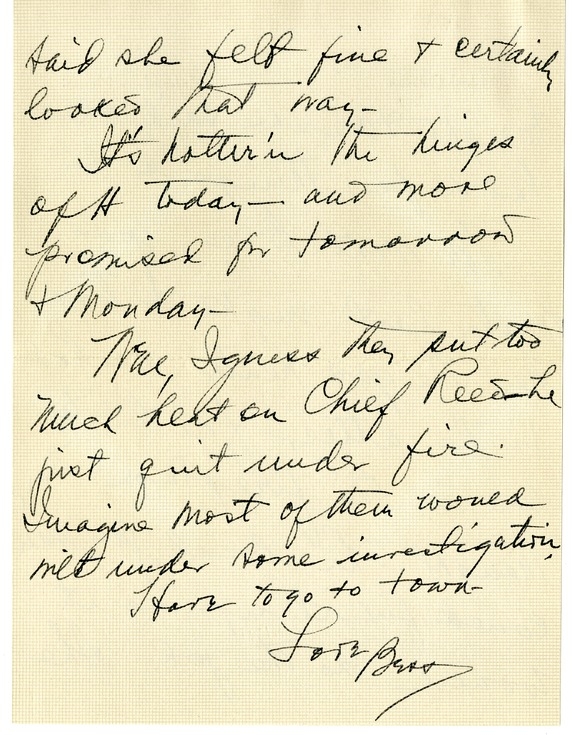 said she felt fine & certainly
looked that way—
It's hotter'n the hinges
of H today— and more
promised for tomorrow
& Monday—
Well, I guess they put too
much heat on Chief Reed—he
just quit under fire.
Imagine most of them would
wilt under some investigation.
Have to go to town—
Love Bess